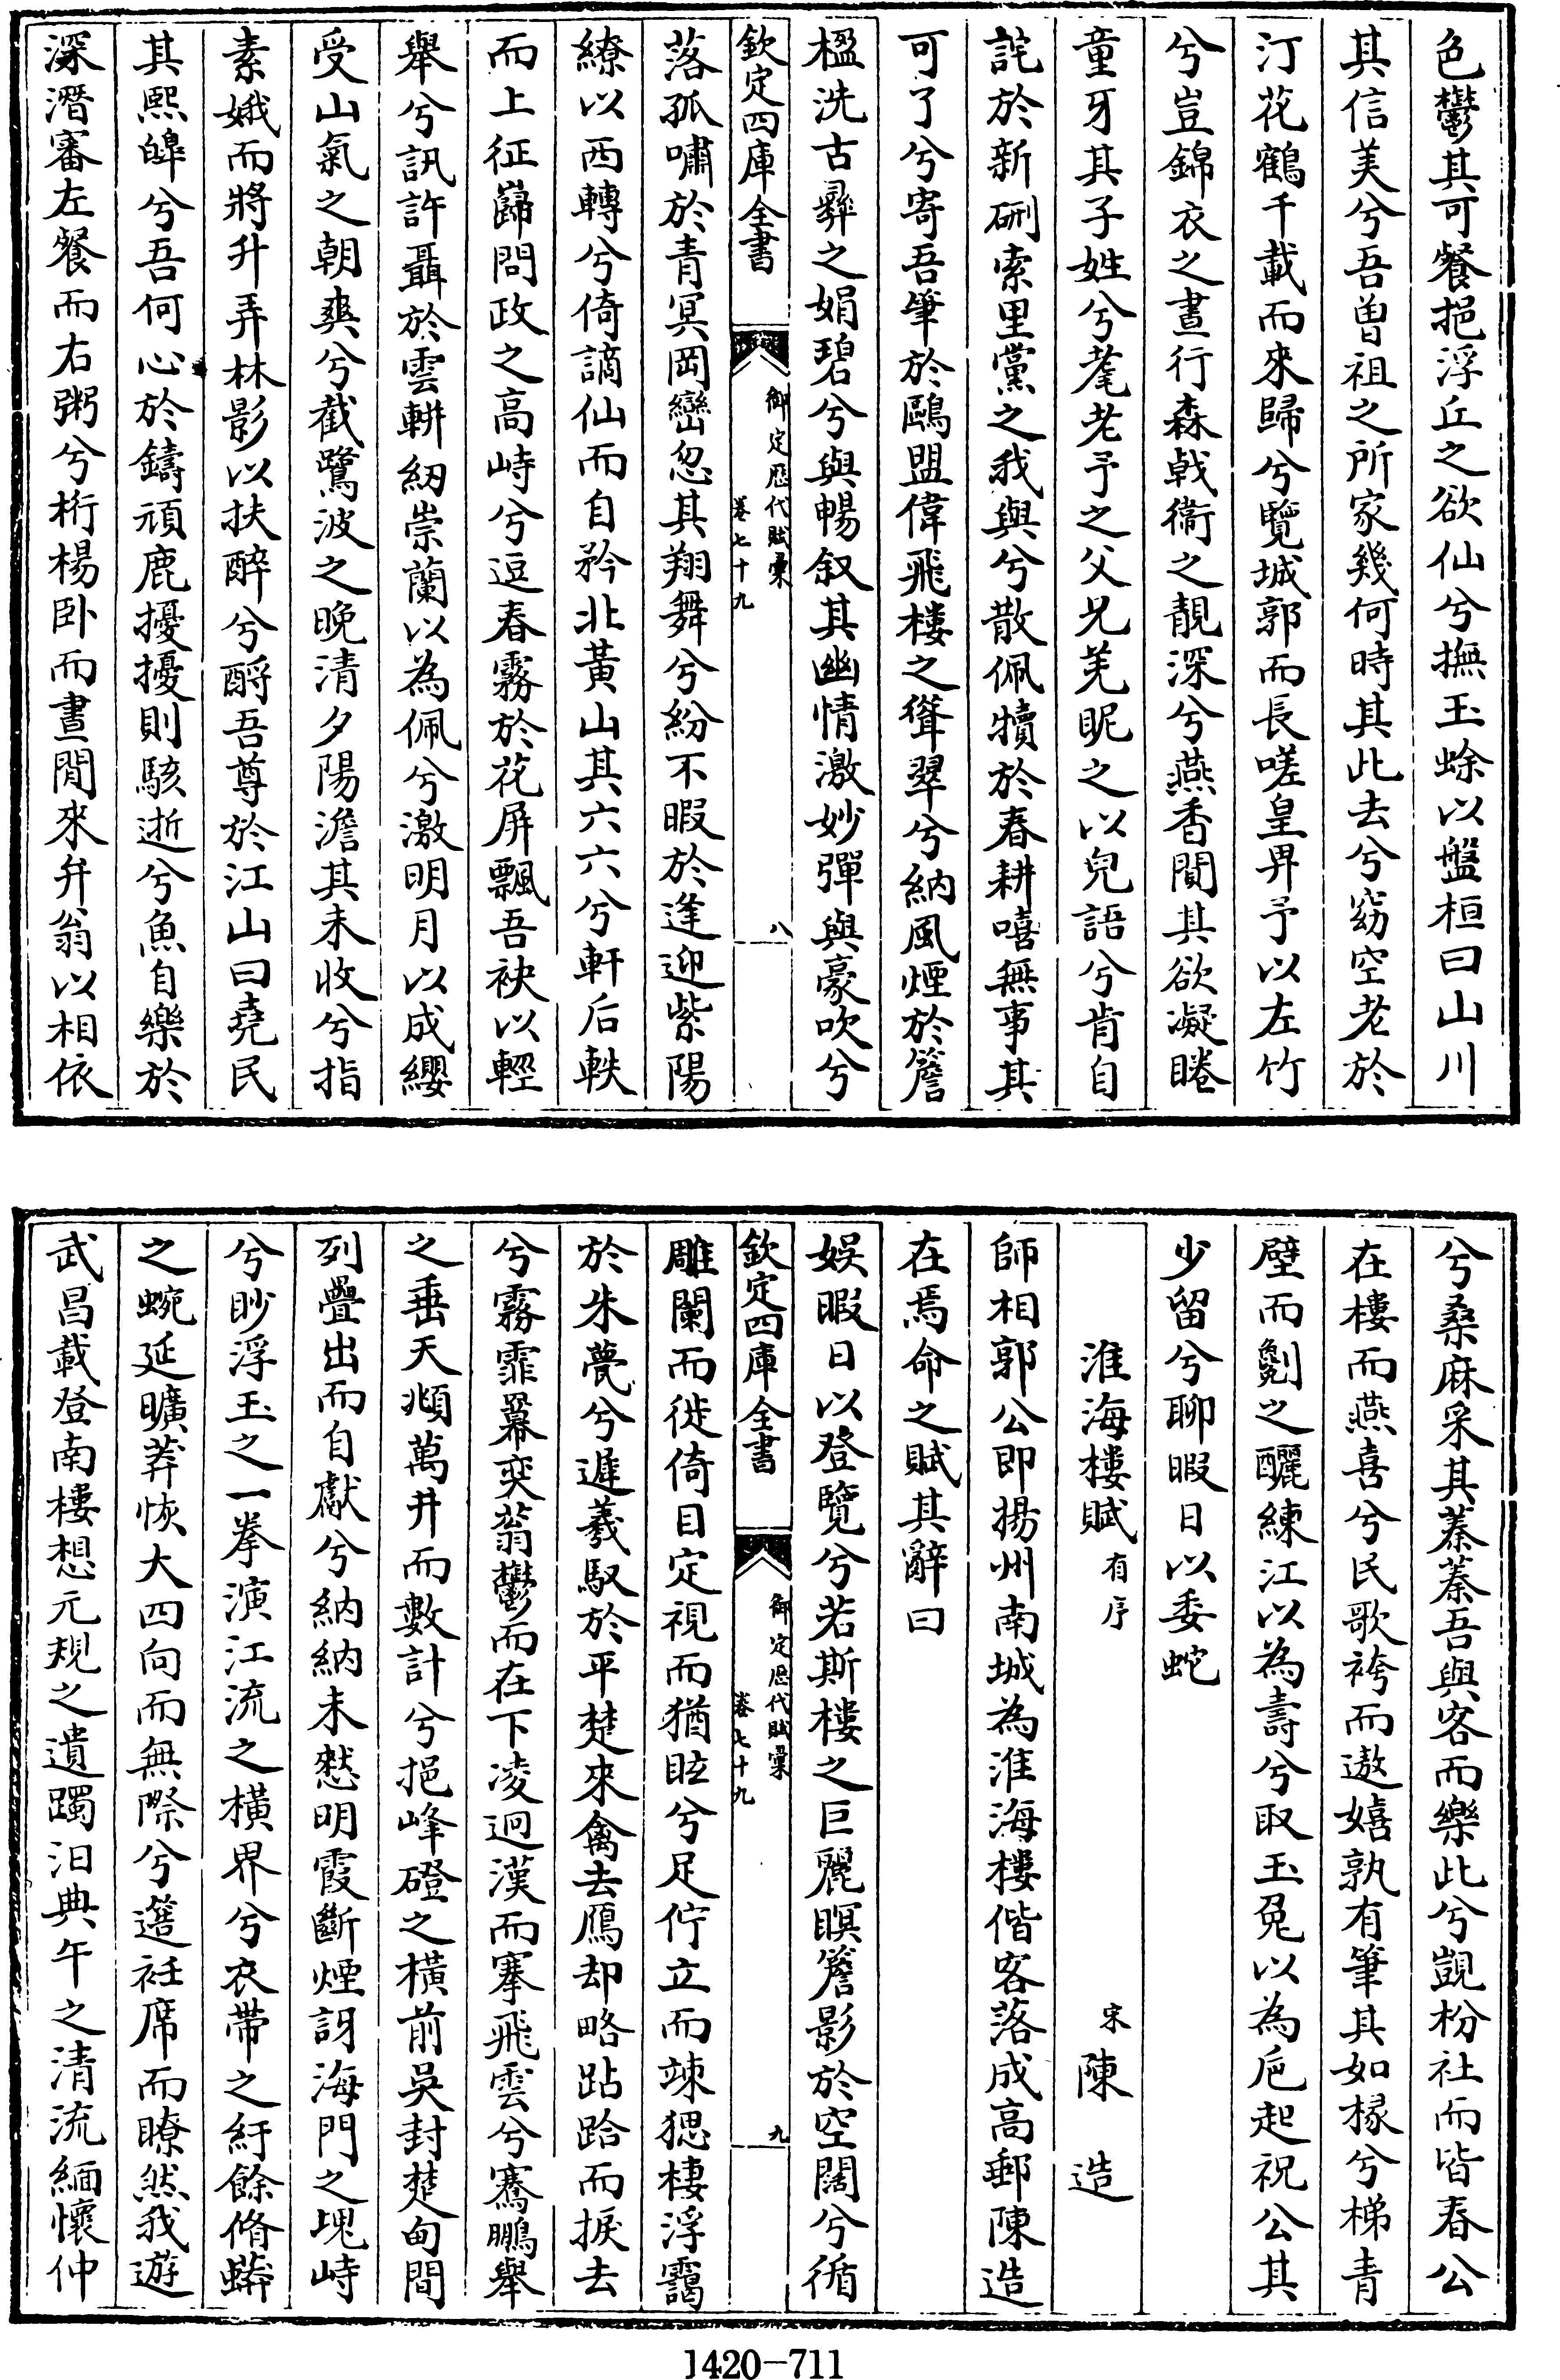 色鬱其可餐挹浮丘之欲仙兮撫玉蜍以盤桓曰山川
其信美兮吾曽祖之所家幾何時其此去兮窈空老於
汀花鶴千載而來歸兮覽城郭而長嗟皇畀予以左竹
兮豈錦衣之晝行森㦸衞之靚深兮燕香閴其欲凝睠
童牙其子姓兮耄老予之父兄羌昵之以兒語兮肯自
詫於新硎索里黨之我與兮散佩犢於春耕嘻無事其
可了兮寄吾筆於鷗盟偉飛樓之聳翠兮納風煙於簷
楹洗古彞之娟碧兮與暢叙其幽情激妙彈與豪吹兮
欽定四庫全書
御定歴代賦彙
卷七十九
八
落孤嘯於青冥岡巒忽其翔舞兮紛不暇於逢迎紫陽
繚以西轉兮倚謫仙而自矜北黃山其六六兮軒后軼
而上征巋問政之高峙兮逗春霧於花屏飄吾袂以輕
舉兮訊許聶於雲耕紉崇蘭以為佩兮激明月以成纓
受山氣之朝爽兮截鷺波之晚清夕陽澹其未收兮指
素娥而將升弄林影以扶醉兮酹吾尊於江山曰堯民
其熙皡兮吾何心於鑄頑鹿擾擾則駭逝兮魚自樂於
深潛審左餐而右粥兮桁楊卧而晝閒來弁翁以相依
兮桑麻采其蓁蓁吾與客而樂此兮覬枌社而皆春公
在樓而燕喜兮民歌袴而遨嬉孰有筆其如椽兮梯青
壁而劖之釃練江以為壽兮取玉兔以為巵起祝公其
少留兮聊暇日以委蛇
淮海樓賦有序
宋陳造
師相郭公即揚州南城為淮海樓偕客落成高郵陳造
在焉命之賦其辭曰
娯暇日以登覽兮若斯樓之巨麗瞑簷影於空闊兮循
欽定四庫全書
御定歴代賦彙
卷七十九
九
雕闌而徙倚目定視而猶眩兮足佇立而竦猦棲浮靄
於朱甍兮遲羲馭於平楚來禽去鴈却略跕跲而捩去
兮霧霏冪奕蓊鬱而在下凌迥漢而搴飛雲兮騫鵬舉
之垂天兆頫萬井而數計兮挹峰磴之橫前吳封楚甸間
列疊出而自獻兮納納未憖明霞斷煙訝海門之塊峙
兮眇浮玉之一拳演江流之橫界兮衣帶之紆餘脩蠎
之蜿延曠莽恢大四向而無際兮簉袵席而瞭然我遊
武昌載登南樓想元規之遺躅汨典午之清流緬懷仲
1420-711